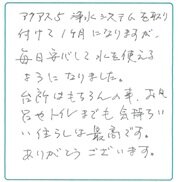 アクアス5 浄水システムを取り
付けて1ヶ月になりますが、
毎日安心して水を使える
ようになりました。
台所はもちろんの事、お風
呂やトイレまでも気持ちい
い住うしは最高です。
ありがとうございます。